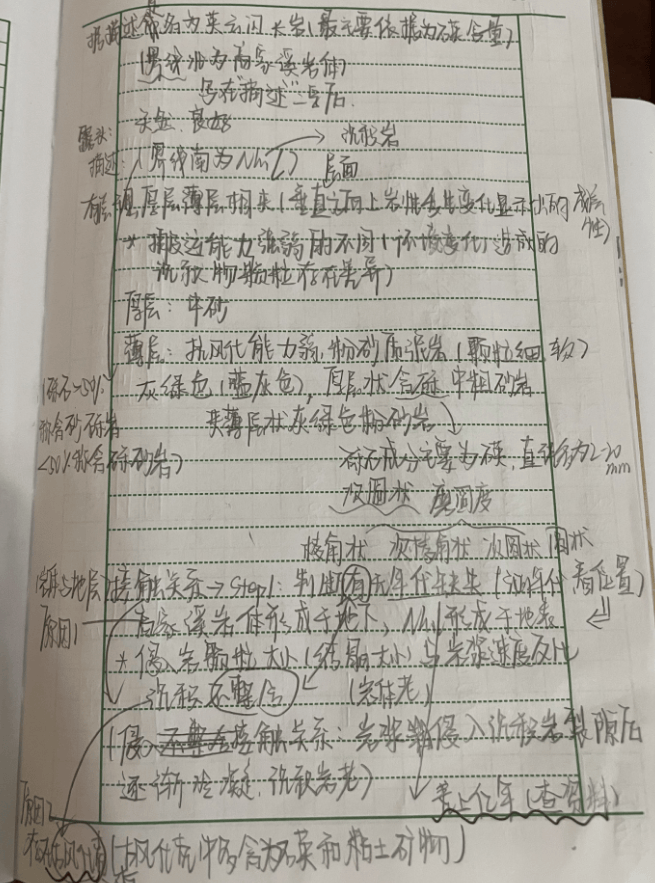 据描述命名为英云闪长岩(最主要依据为石英含量)
(界线北为高家溪岩体)
写在"描述"二字后
露头: 尖金、良好
描述: (界线南为Nh₁l) → 沉积岩
层面
有层理 厚层薄层相夹(垂直方向上岩性发生变化显示出的成层性)
* 搬运能力强弱的不同(环境变化)造成的
沉积物颗粒存在差异)
厚层: 中砂
薄层: 抗风化能力弱, 粉砂质泥岩(颗粒细 软)
(砾石>50% 灰绿色(蓝灰色), 厚层状含砾中粗砂岩
称含砂砾岩 夹薄层状灰绿色粉砂岩
<50%称含砾砂岩) 砾石成分主要为石英, 直径多为2-20mm
次圆状 磨圆度
棱角状 次棱角状 次圆状 圆状
岩体与地层接触关系→Step1: 判断有无年代缺失(沉积年代 看位置)
原因1 高家溪岩体形成于地下, Nh₁l形成于地表
* 侵入岩颗粒大小(结晶大小)与岩浆速度反比
沉积不整合 (岩体老)
(侵入接触关系: 岩浆侵入沉积岩裂隙后
逐渐冷凝, 沉积岩老)
差上亿年(查资料)
原因2
存在古风化壳(古风化壳中多含石英和粘土矿物)